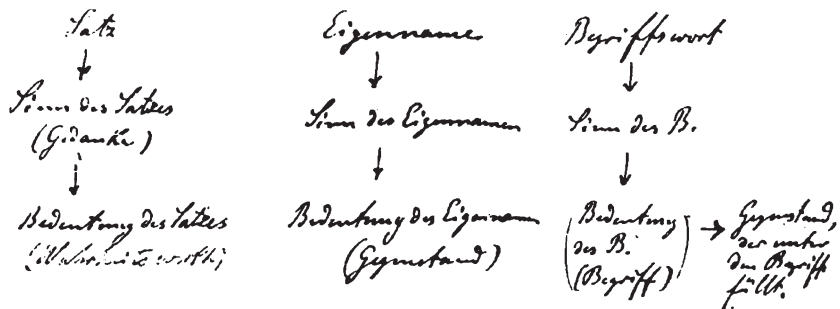 Satz
↓
Sinn des Satzes
(Gedanke)
↓
Bedeutung des Satzes
(Wahrheitswerth)
Eigenname
↓
Sinn des Eigennamen
↓
Bedeutung des Eigennamen
(Gegenstand)
Begriffswort
↓
Sinn des B.
↓
(Bedeutung
des B.
(Begriff)) → Gegenstand,
der unter
den Begriff
fällt.